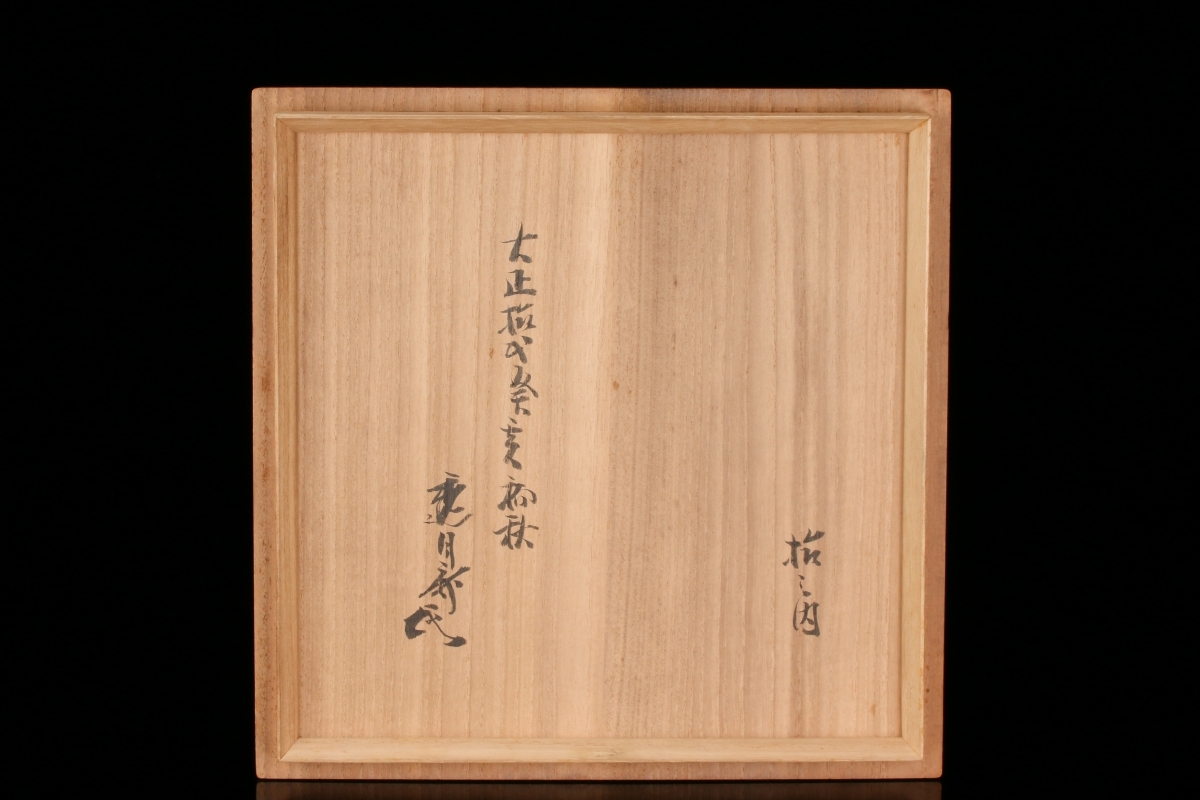 拾之内
大正拾弐年癸亥初秋
月斎